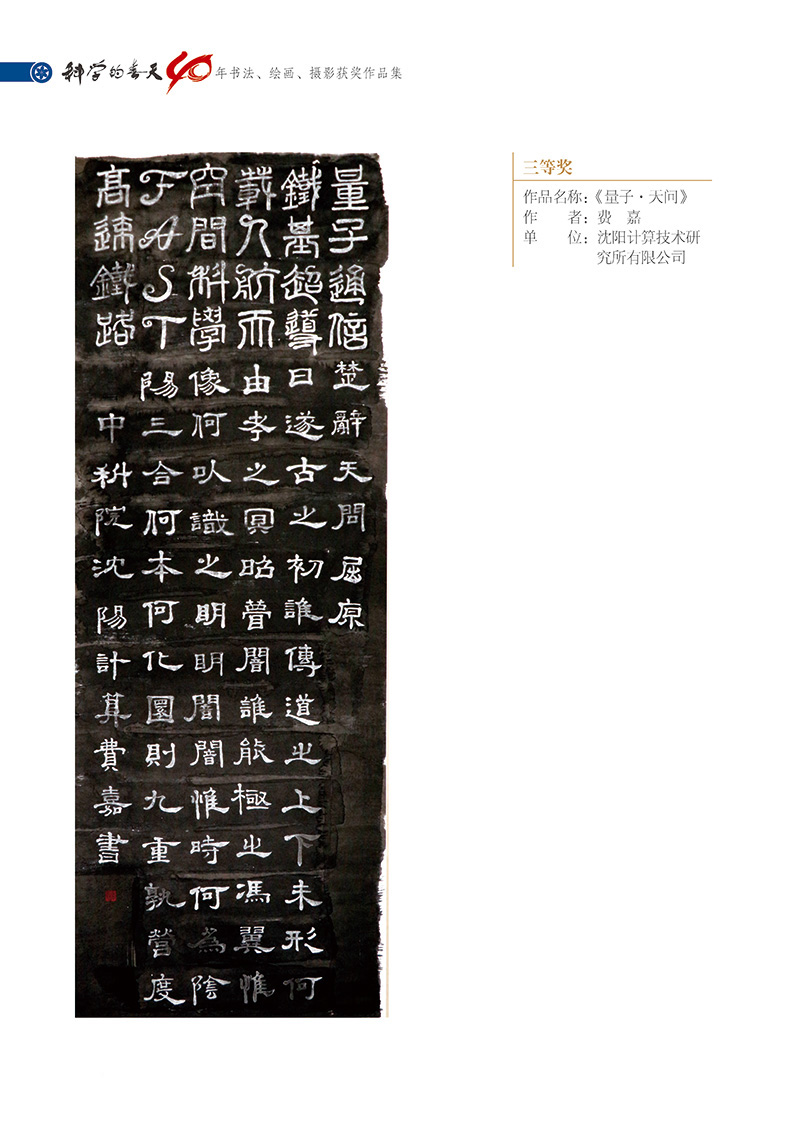 科学的春天40年书法、绘画、摄影获奖作品集
量子通信楚辭天問屈原
鐵基超導曰遂古之初誰傳道之上下未形何
載人航天由考之冥昭瞢闇誰能極之馮翼惟
空間科學像何以識之明明闇闇惟時何為陰
FAST陽三合何本何化圜則九重孰營度
高速鐵路中科院沈陽計算費嘉書
三等奖
作品名称：《量子·天问》
作　　者：费　嘉
单　　位：沈阳计算技术研
究所有限公司